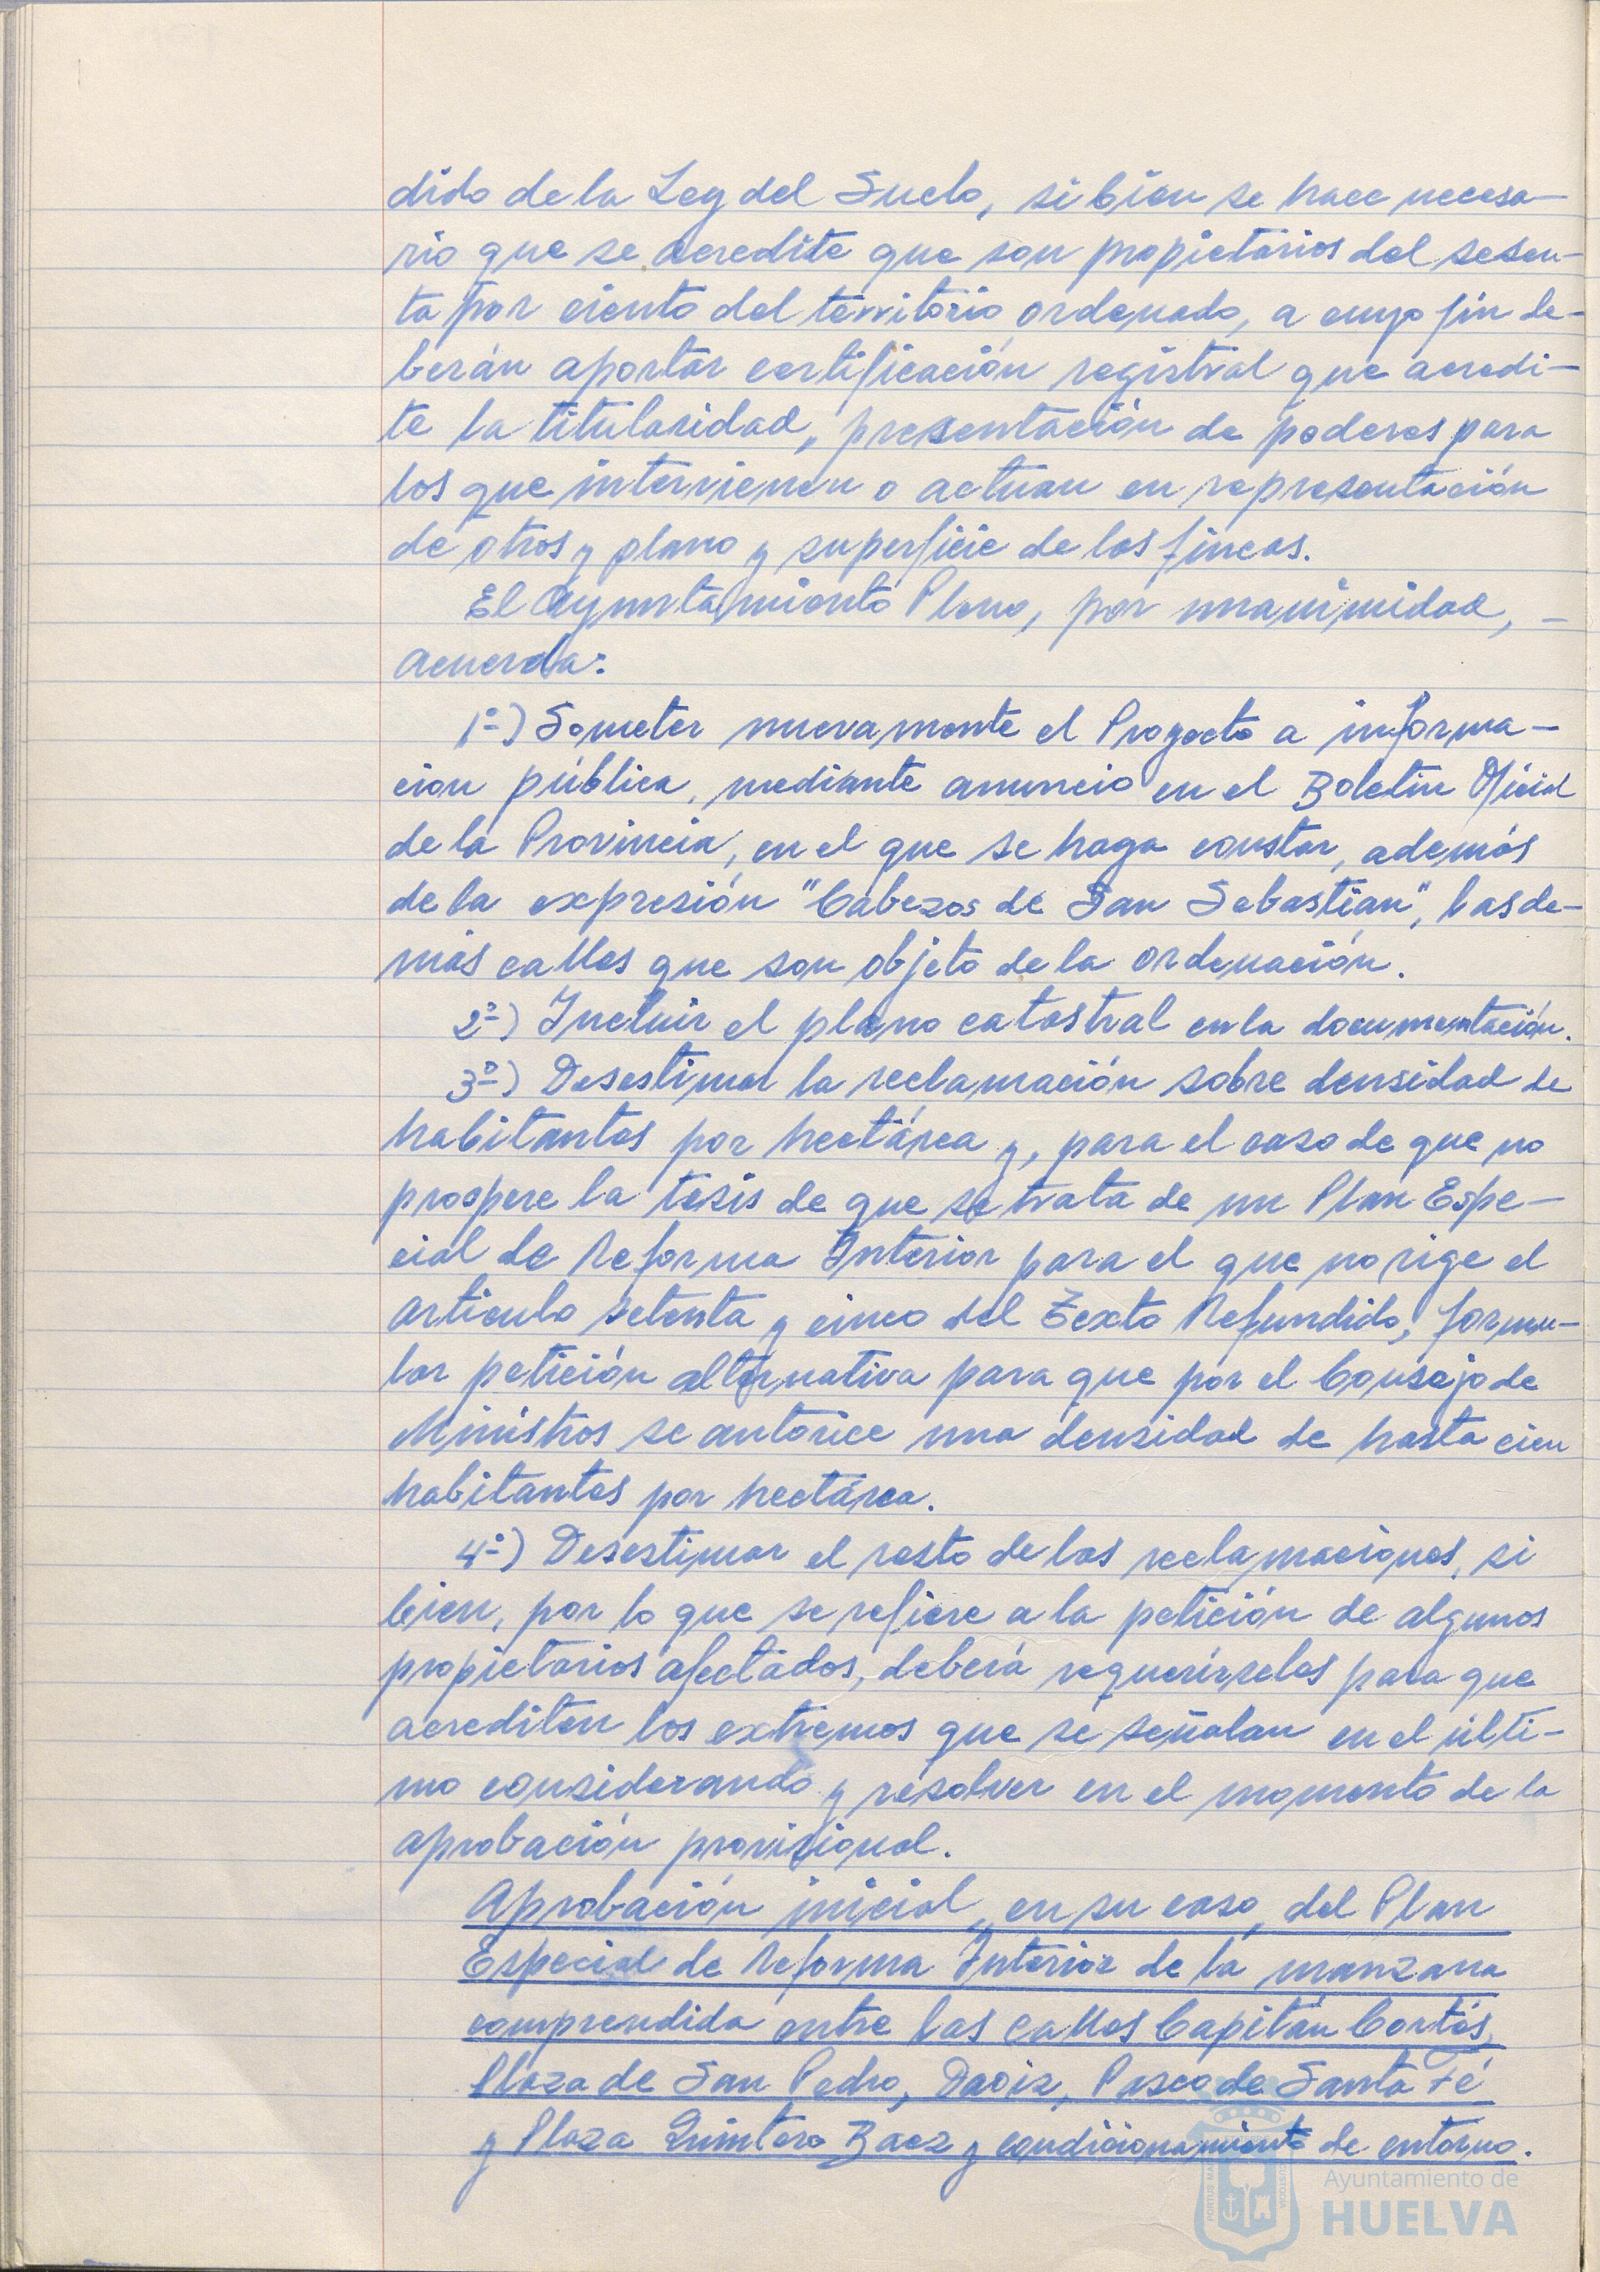 dido de la Ley del Suelo, si bien se hace necesa-
rio que se acredite que son propietarios del sesen-
ta por ciento del territorio ordenado, a cuyo fin de-
berán aportar certificación registral que acredi-
te la titularidad, presentación de poderes para
los que intervienen o actuan en representación
de otros y plano y superficie de las fincas.
El Ayuntamiento Pleno, por unanimidad, -
acuerda:
1º-) Someter nuevamente el Proyecto a informa-
cion pública, mediante anuncio en el Boletin Oficial
de la Provincia, en el que se haga constar, además
de la expresión "Cabezos de San Sebastian", las de-
más calles que son objeto de la ordenación.
2º-) Incluir el plano catastral en la documentación.
3º-) Desestimar la reclamación sobre densidad de
habitantes por hectárea y, para el caso de que no
prospere la tesis de que se trata de un Plan Espe-
cial de Reforma Interior para el que no rige el
articulo setenta y cinco del Texto Refundido, formu-
lar petición alternativa para que por el Consejo de
Ministros se autorice una densidad de hasta cien
habitantes por hectárea.
4º-) Desestimar el resto de las reclamaciones, si
bien, por lo que se refiere a la petición de algunos
propietarios afectados, deberá requerírseles para que
acrediten los extremos que se señalan en el últi-
mo considerando y resolver en el momento de la
aprobación provisional.
Aprobación inicial, en su caso, del Plan
Especial de Reforma Interior de la manzana
comprendida entre las calles Capitán Cortés,
Plaza de San Pedro, Daoiz, Paseo de Santa Fé
y Plaza Quintero Baez y condicionamiento de entorno.
Ayuntamiento de
HUELVA